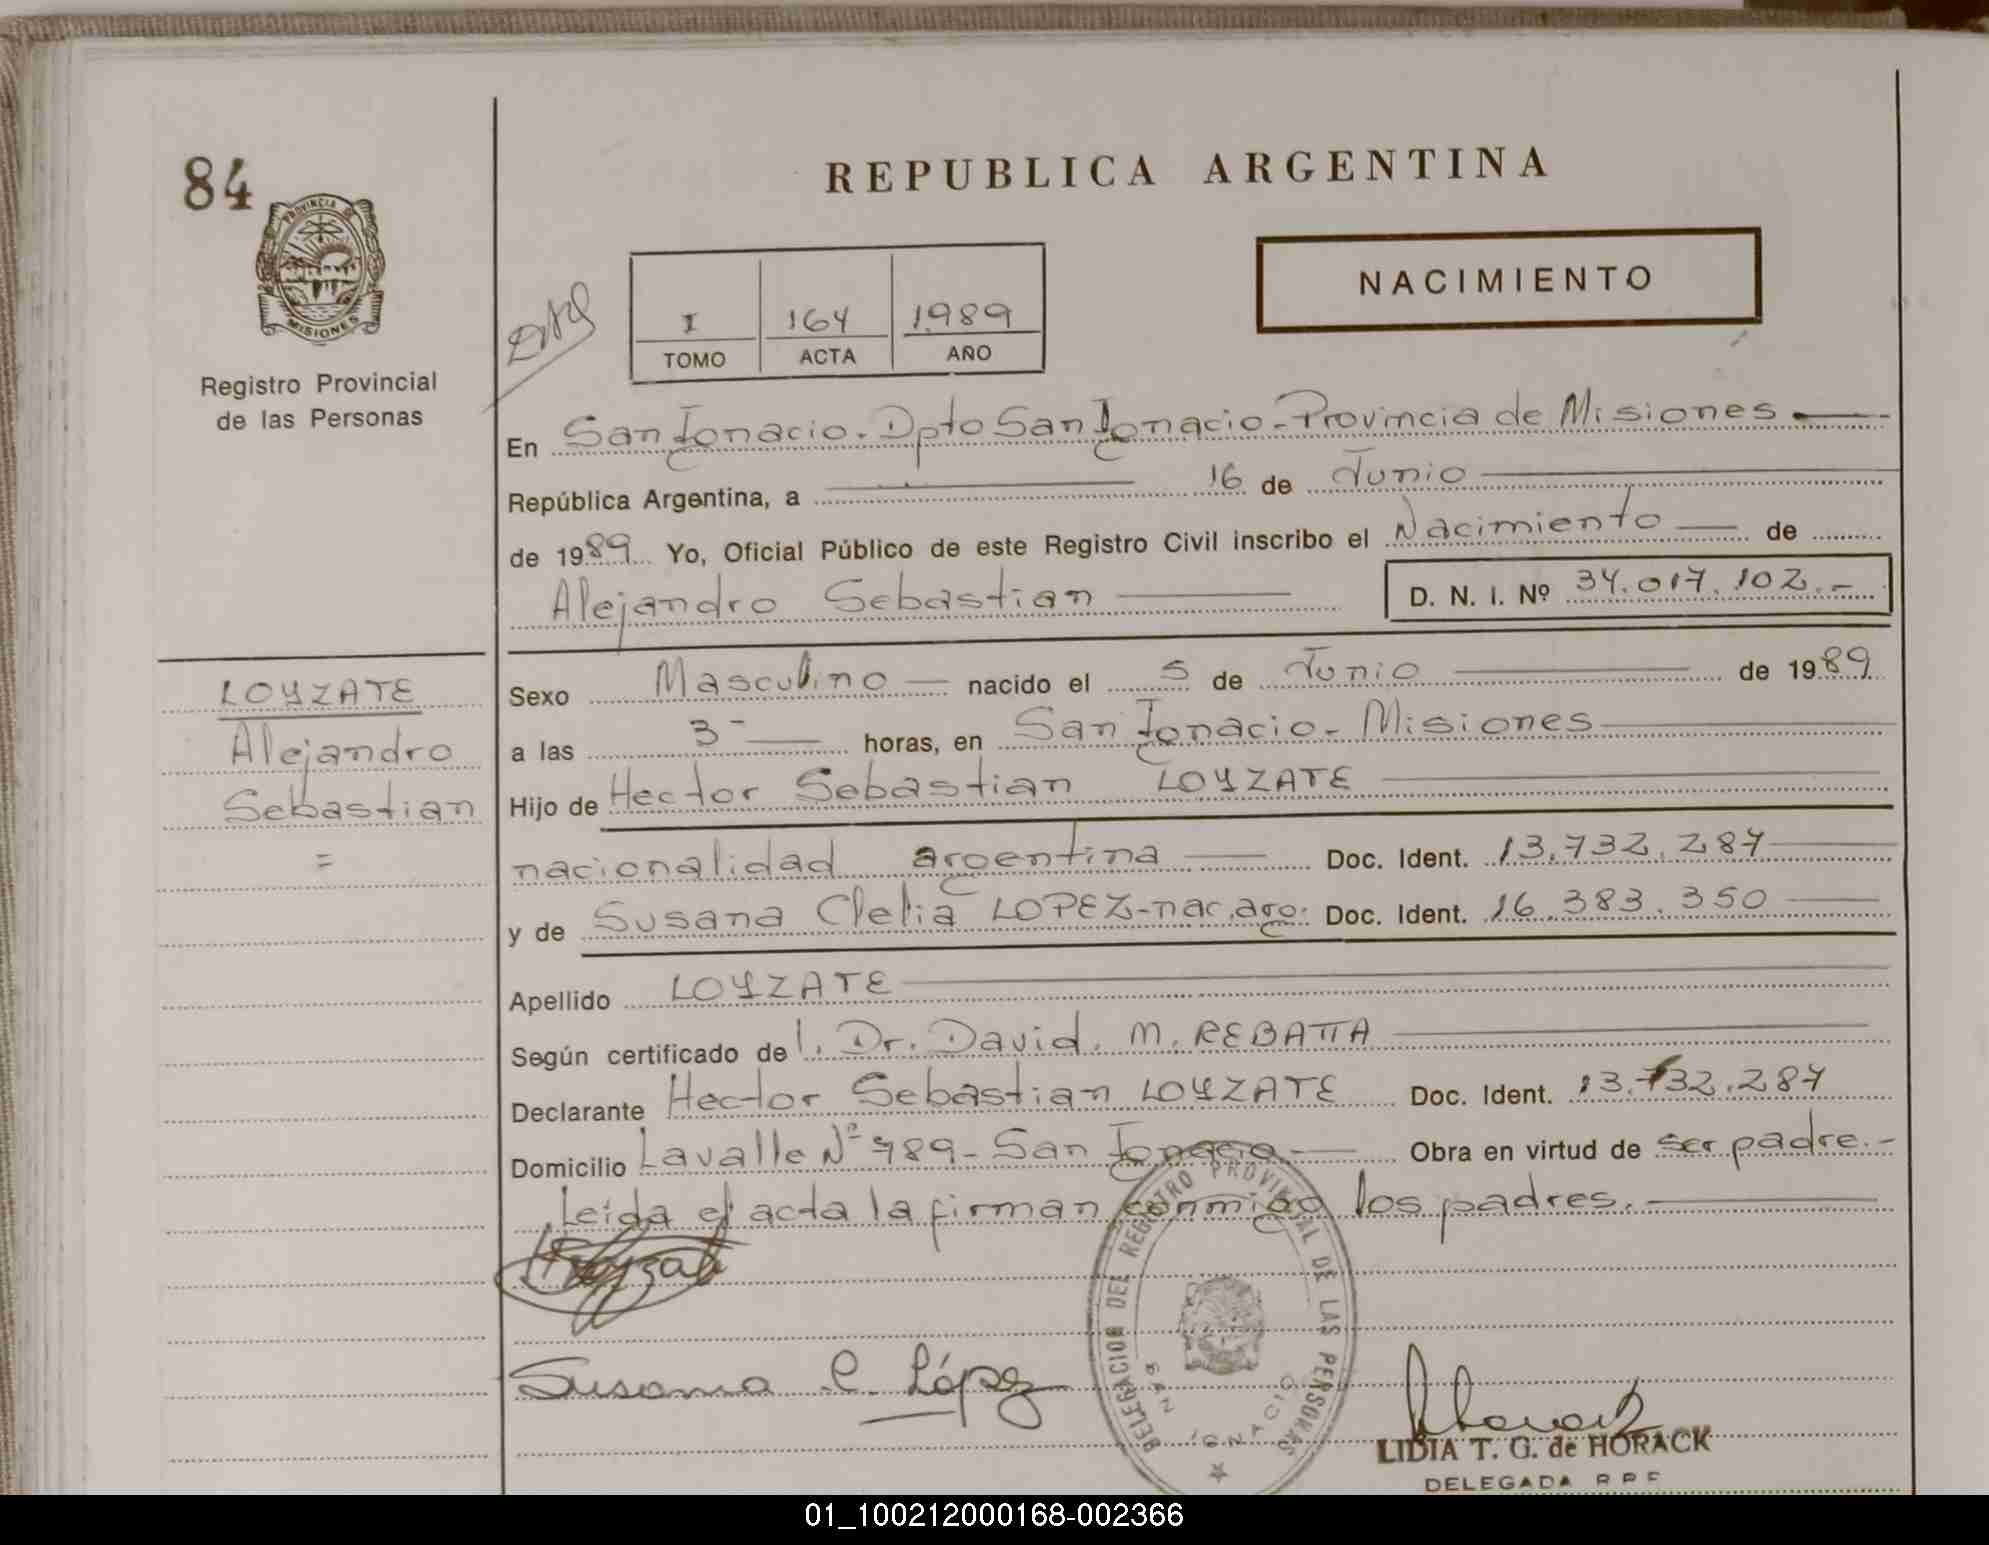 84
PROVINCIA DE
MISIONES
Registro Provincial
de las Personas
REPUBLICA ARGENTINA
NACIMIENTO
I 164 1989
TOMO ACTA AÑO
En San Ignacio. Dpto San Ignacio. Provincia de Misiones
República Argentina, a 16 de Junio
de 1989 Yo, Oficial Público de este Registro Civil inscribo el Nacimiento de
Alejandro Sebastian D. N. I. Nº 34.017.102.-
LOYZATE
Alejandro
Sebastian
=
Sexo Masculino nacido el 5 de Junio de 1989
a las 3- horas, en San Ignacio. Misiones
Hijo de Hector Sebastian LOYZATE
nacionalidad argentina Doc. Ident. 13.732.287
y de Susana Clelia LOPEZ-nac. arg. Doc. Ident. 16.383.350
Apellido LOYZATE
Según certificado del. Dr. David. M. REBATTA
Declarante Hector Sebastian LOYZATE Doc. Ident. 13.732.287
Domicilio Lavalle Nº 789- San Ignacio Obra en virtud de ser padre.-
Leída el acta la firman conmigo los padres.
DELEGACION DEL REGISTRO PROVINCIAL DE LAS PERSONAS
SAN IGNACIO
Susana C. López
LIDIA T. G. de HORACK
DELEGADA R P F
01_100212000168-002366